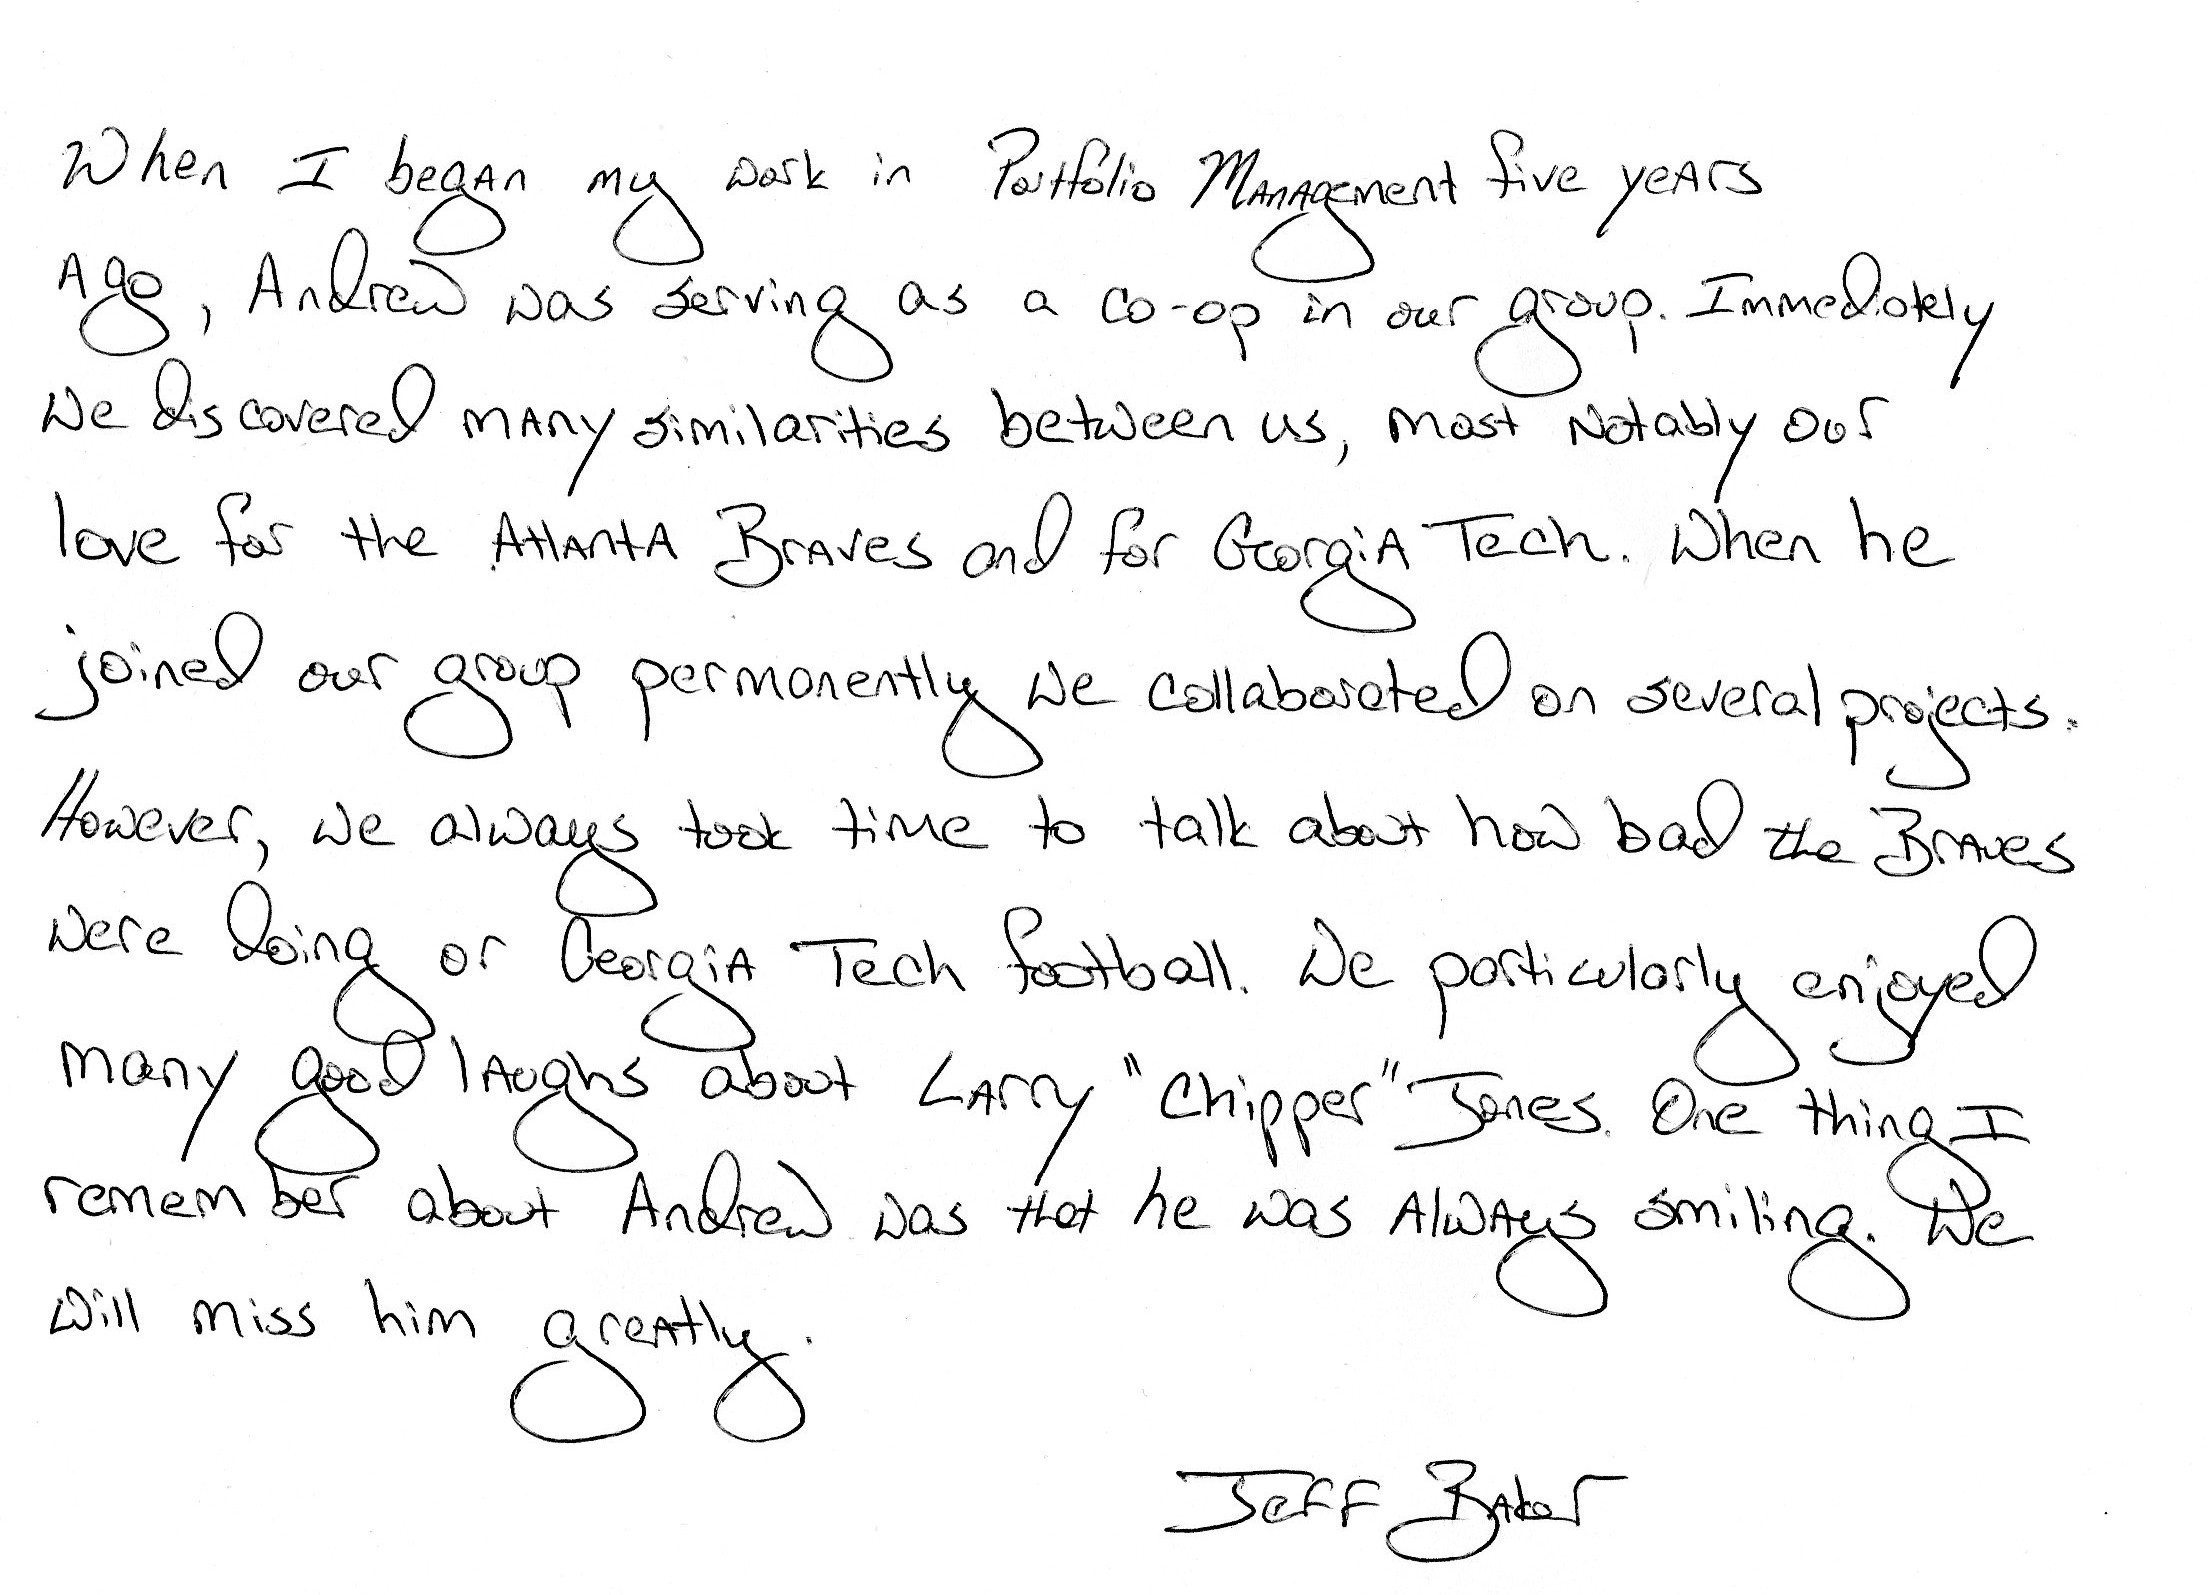 When I began my work in Portfolio Management five years
ago, Andrew was serving as a co-op in our group. Immediately
we discovered many similarities between us, most notably our
love for the Atlanta Braves and for Georgia Tech. When he
joined our group permanently we collaborated on several projects.
However, we always took time to talk about how bad the Braves
were doing or Georgia Tech football. We particularly enjoyed
many good laughs about Larry "Chipper" Jones. One thing I
remember about Andrew was that he was always smiling. We
will miss him greatly.
Jeff Baker